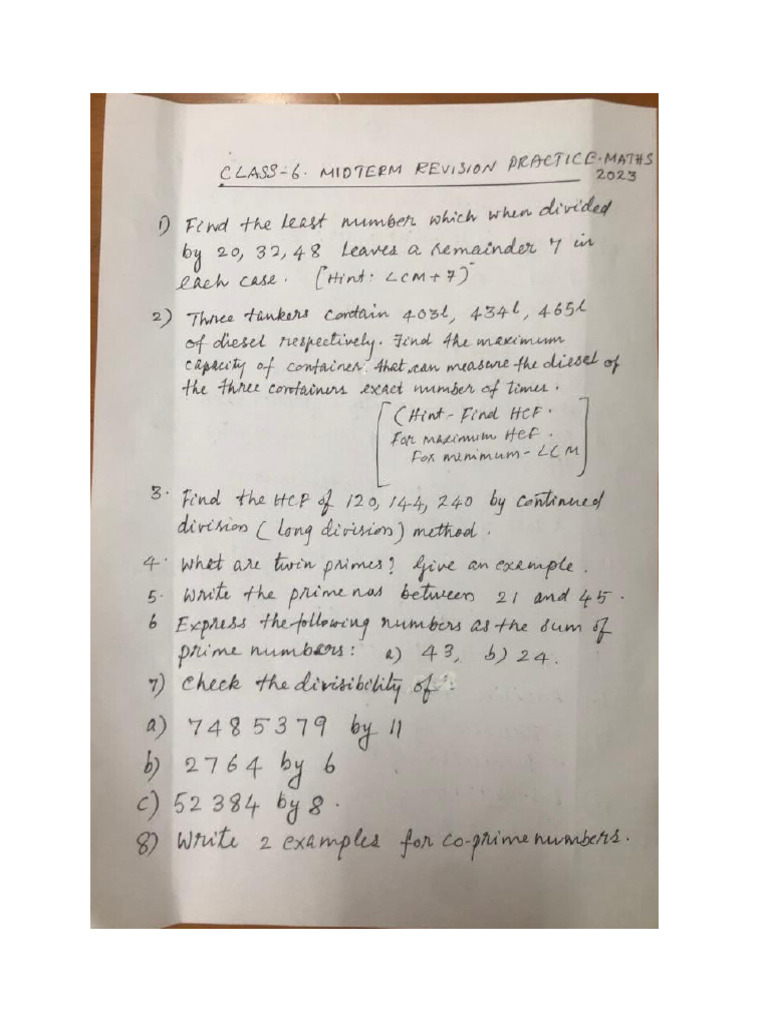 CLASS-6. MIDTERM REVISION PRACTICE-MATHS
2023
1) Find the least number which when divided
by 20, 32, 48 leaves a remainder 7 in
each case. [Hint: LCM+7)
2) Three tankers contain 403l, 434l, 465l
of diesel respectively. Find the maximum
capacity of container that can measure the diesel of
the three containers exact number of times.
[(Hint- Find HCF.
For maximum HCF.
For minimum-LCM]
3. Find the HCF of 120, 144, 240 by continued
division (long division) method.
4. What are twin primes? Give an example.
5. Write the prime nos between 21 and 45.
6 Express the following numbers as the sum of
prime numbers: a) 43, b) 24.
7) Check the divisibility of:
a) 7485379 by 11
b) 2764 by 6
c) 52384 by 8.
8) Write 2 examples for co-prime numbers.